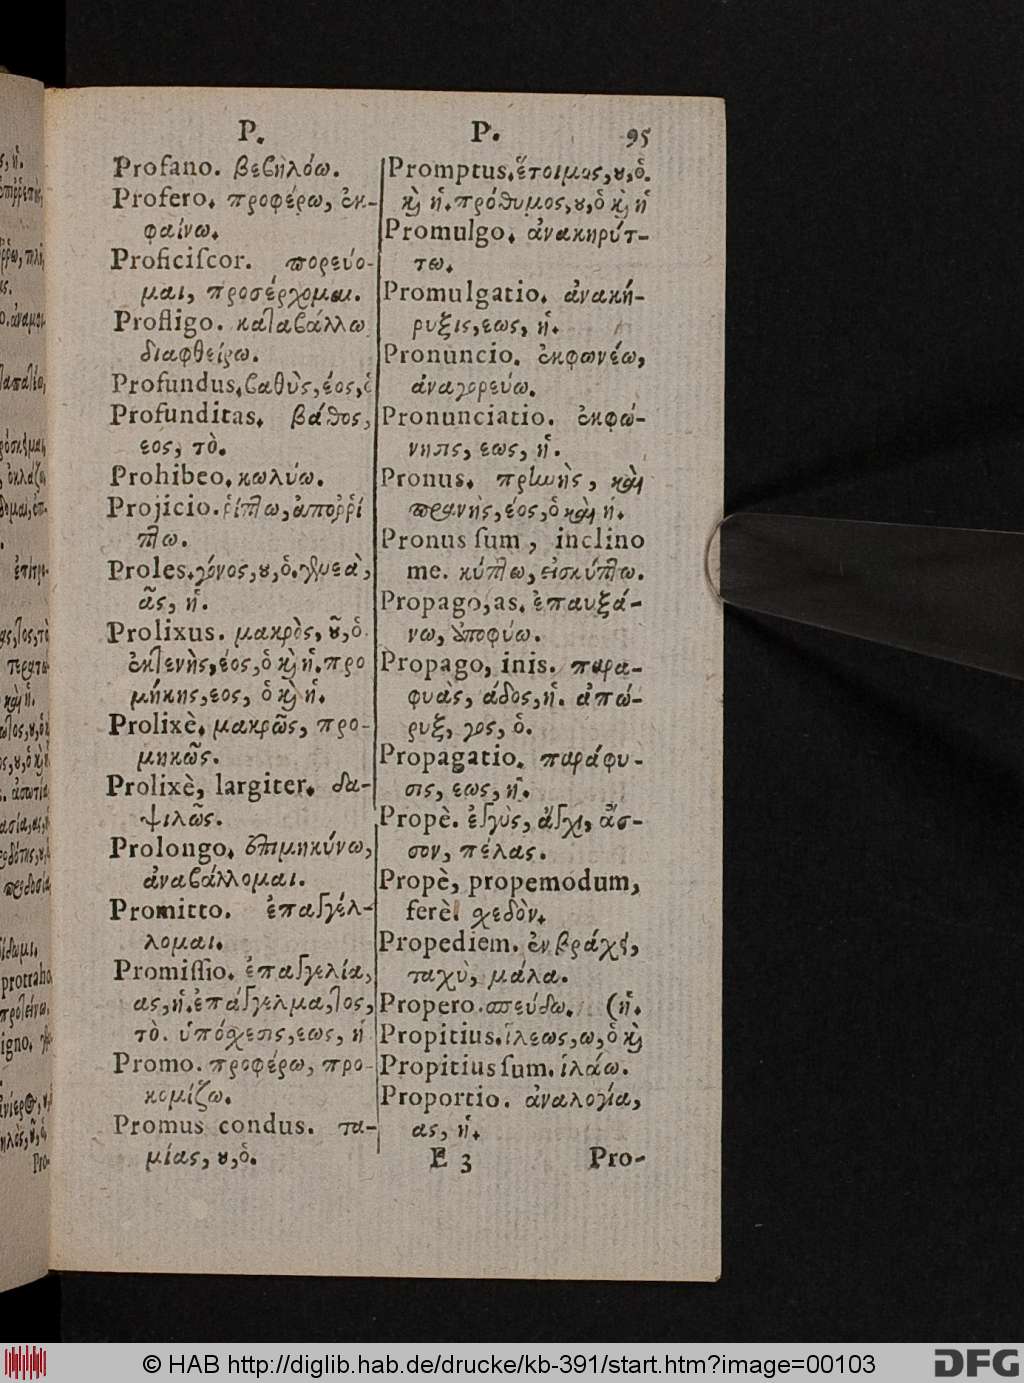 P.
Profano. βεβηλόω.
Profero. προφέρω, ἐκ-
φαίνω.
Proficiſcor. πορεύο-
μαι, προσέρχομαι.
Profligo. καταβάλλω
διαφθείρω.
Profundus. βαθὺς, έος, ὁ
Profunditas. βάθος,
εος, τὸ.
Prohibeo. κωλύω.
Projicio. ῥίπτω, ἀποῤῥί
πτω.
Proles. γόνος, ου, ὁ. γενεὰ,
ᾶς, ἡ.
Prolixus. μακρὸς, οῦ, ὁ.
ἐκτενὴς, έος, ὁ καὶ ἡ. προ
μήκης, εος, ὁ καὶ ἡ.
Prolixè. μακρῶς, προ-
μηκῶς.
Prolixè, largiter. δα-
ψιλῶς.
Prolongo. ἐπιμηκύνω,
ἀναβάλλομαι.
Promitto. ἐπαγγέλ-
λομαι.
Promiſſio. ἐπαγγελία,
ας, ἡ. ἐπάγγελμα, τος,
τὸ. ὑπόχεσις, εως, ἡ
Promo. προφέρω, προ-
κομίζω.
Promus condus. τα-
μίας, ου, ὁ.
P. 95
Promptus. ἕτοιμος, ου, ὁ.
καὶ ἡ. πρόθυμος, ου, ὁ καὶ ἡ
Promulgo. ἀνακηρύτ-
τω.
Promulgatio. ἀνακή-
ρυξις, εως, ἡ.
Pronuncio. ἐκφωνέω,
ἀναγορεύω.
Pronunciatio. ἐκφώ-
νησις, εως, ἡ.
Pronus. πρηνὴς, καὶ
πρανὴς, έος, ὁ καὶ ἡ.
Pronus ſum, inclino
me. κύπτω, εἰσκύπτω.
Propago, as. ἐπαυξά-
νω, ὑποφύω.
Propago, inis. παρα-
φυὰς, άδος, ἡ. ἀπώ-
ρυξ, γος, ὁ.
Propagatio. παράφυ-
σις, εως, ἡ.
Propè. ἐγγὺς, ἄγχι, ἆσ-
σον, πέλας.
Propè, propemodum,
ferè. σχεδὸν.
Propediem. ἐν βράχει,
ταχὺ, μάλα.
Propero. σπεύδω. (ἡ.
Propitius. ἵλεως, ω, ὁ καὶ
Propitius ſum. ἱλάω.
Proportio. ἀναλογία,
ας, ἡ.
E 3 Pro-
© HAB http://diglib.hab.de/drucke/kb-391/start.htm?image=00103
DFG